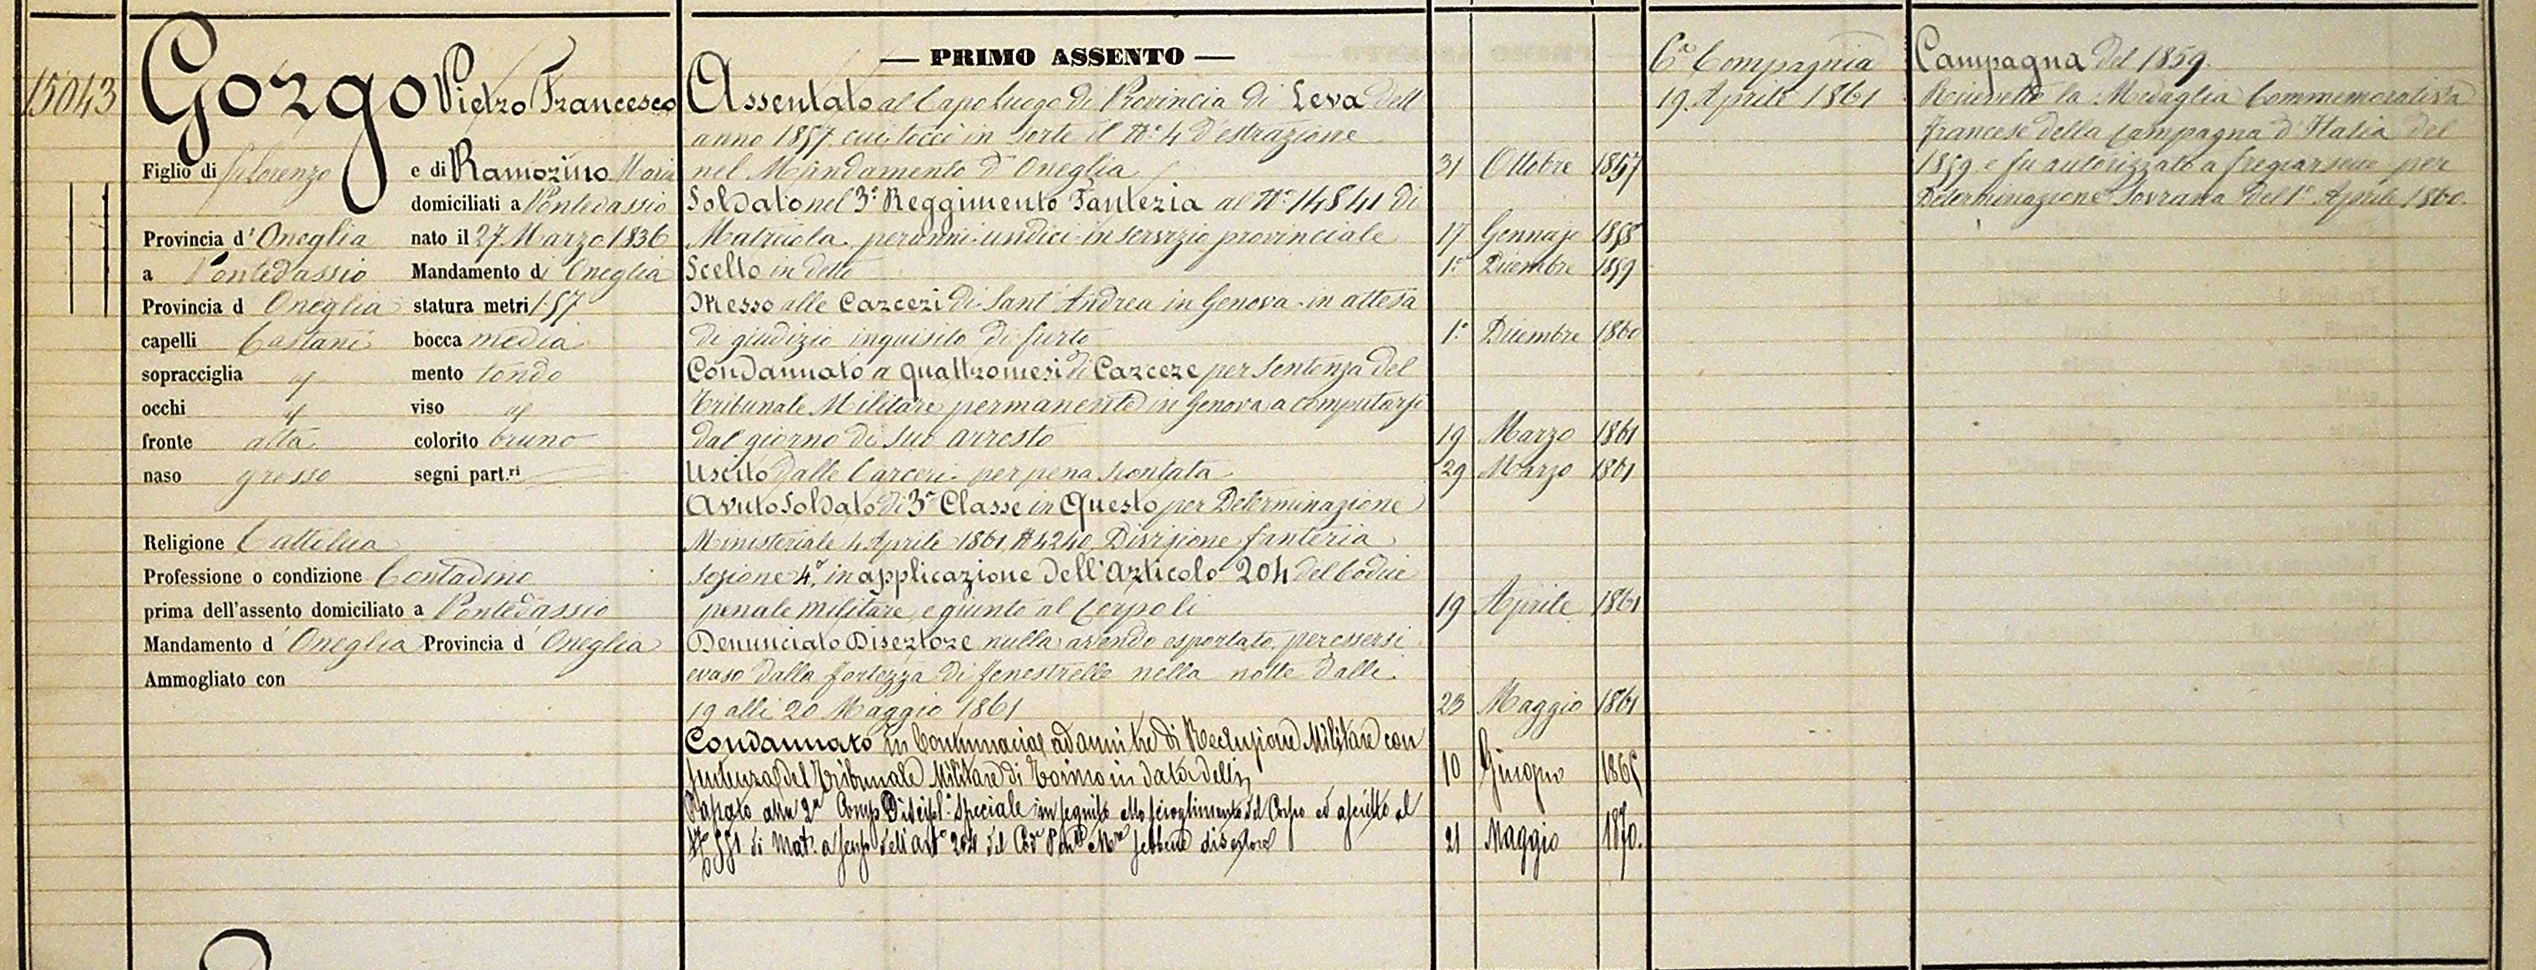 15043
Gorgo Pietro Francesco
Figlio di fu Lorenzo e di Ramozino Maria
domiciliati a Pontedassio
Provincia d'Oneglia nato il 27 Marzo 1836
a Pontedassio Mandamento di Oneglia
Provincia d Oneglia statura metri 1.57
capelli Castani bocca media
sopracciglia id mento tondo
occhi id viso id
fronte alta colorito bruno
naso grosso segni part.ri
Religione Cattolica
Professione o condizione Contadino
prima dell'assento domiciliato a Pontedassio
Mandamento d' Oneglia Provincia d' Oneglia
Ammogliato con
— PRIMO ASSENTO —
Assentato al Capoluogo di Provincia di Leva dell
anno 1857 cui toccò in sorte il N° 4 d'estrazione
nel Mandamento d'Oneglia 31 Ottobre 1857
Soldato nel 3° Reggimento Fanteria al N° 14841 di
Matricola per anni undici in servizio provinciale 17 Gennajo 1858
Scelto in detto 1° Dicembre 1859
Messo alle Carceri di Sant'Andrea in Genova in attesa
di giudizio inquisito di furto 1° Dicembre 1860
Condannato a quattro mesi di Carcere per Sentenza del
Tribunale Militare permanente in Genova a computarsi
dal giorno di suo arresto 19 Marzo 1861
Uscito dalle Carceri per pena scontata 29 Marzo 1861
Avuto Soldato di 3a Classe in Questo per Determinazione
Ministeriale 4 Aprile 1861 N 4240 Divisione fanteria
sezione 4a, in applicazione dell'articolo 204 del Codice
penale militare, e giunto al Corpo li 19 Aprile 1861
Denunciato Disertore nulla avendo esportato, per essersi
evaso dalla fortezza di Fenestrelle nella notte dalli
19 alli 20 Maggio 1861 23 Maggio 1861
Condannato in Contumacia ad anni tre di Reclusione Militare con
sentenza del Tribunale Militare di Torino in data delli 10 Giugno 1865
Passato alla 2a Comp Discipl. Speciale in seguito allo scioglimento del Corpo ed ascritto al
N° 551 di Mat. a senso dell'art° 204 del Cod° Pen.le M.re sebbene disertore 21 Maggio 1870.
6a Compagnia
19 Aprile 1861
Campagna del 1859.
Ricevette la Medaglia Commemorativa
francese della Campagna d'Italia del
1859 e fu autorizzato a fregiarsene per
Determinazione Sovrana del 1° Aprile 1860.